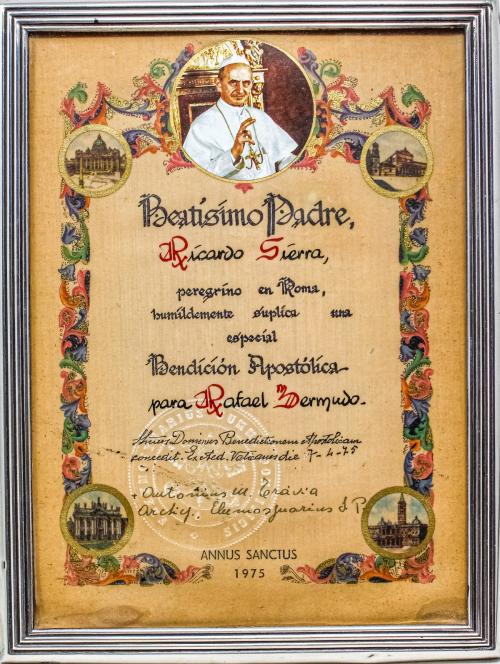 Beatísimo Padre,
Ricardo Sierra,
peregrino en Roma,
humildemente suplica una
especial
Bendición Apostólica
para Rafael Mº Bermudo.
Dominus Benedictionem Apostolicam
concedit. Ex Aed. Vaticanis die 7-4-75
+ Antonius M. Travia
Archiep. Elemosynarius S. P.
ANNUS SANCTUS
1975